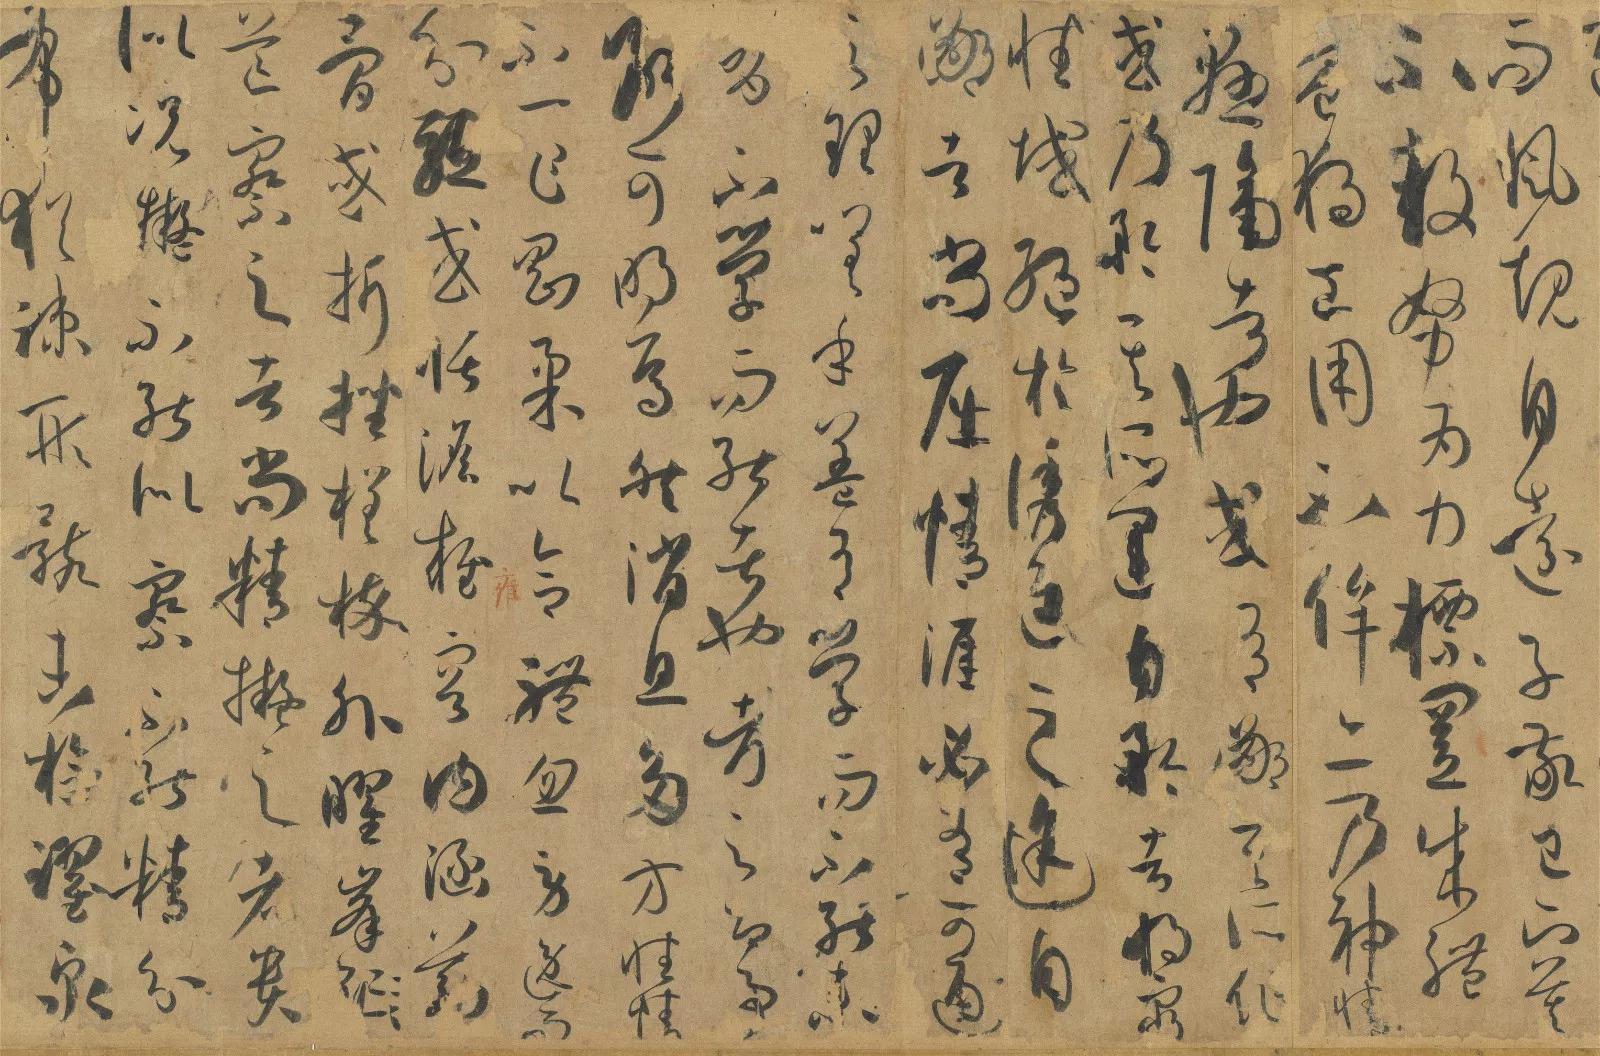 而風規自遠子敬已下莫
不鼓努為力標置成體
豈獨工用不侔亦乃神情
懸隔者也或有鄙其所作
或乃矜其所運自矜者將窮
性域絕於誘進之途自
鄙者尚屈情涯必有可通
之理嗟乎蓋有學而不能未
有不學而能者也考之即事
斷可明焉然消息多方性情
不一乍剛柔以合體忽勞逸而
分驅或恬澹雍容內涵筋
骨或折挫槎枿外曜峯
芒察之者尚精擬之者貴
似況擬不能似察不能精分
布猶疎形骸未檢躍泉